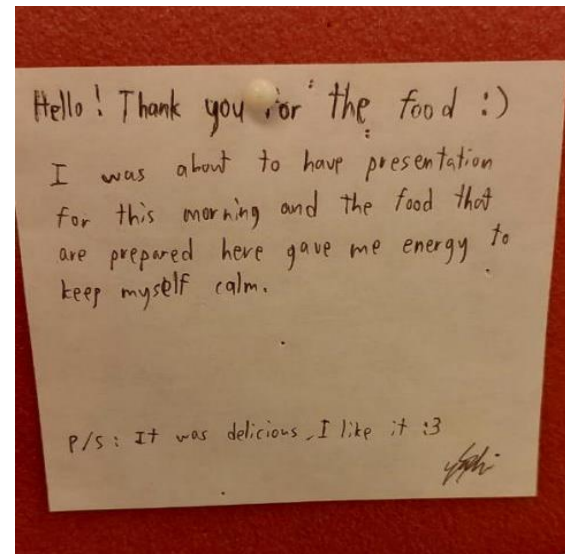 Hello! Thank you for the food :)
I was about to have presentation
for this morning and the food that
are prepared here gave me energy to
keep myself calm.
P/S: It was delicious, I like it :3